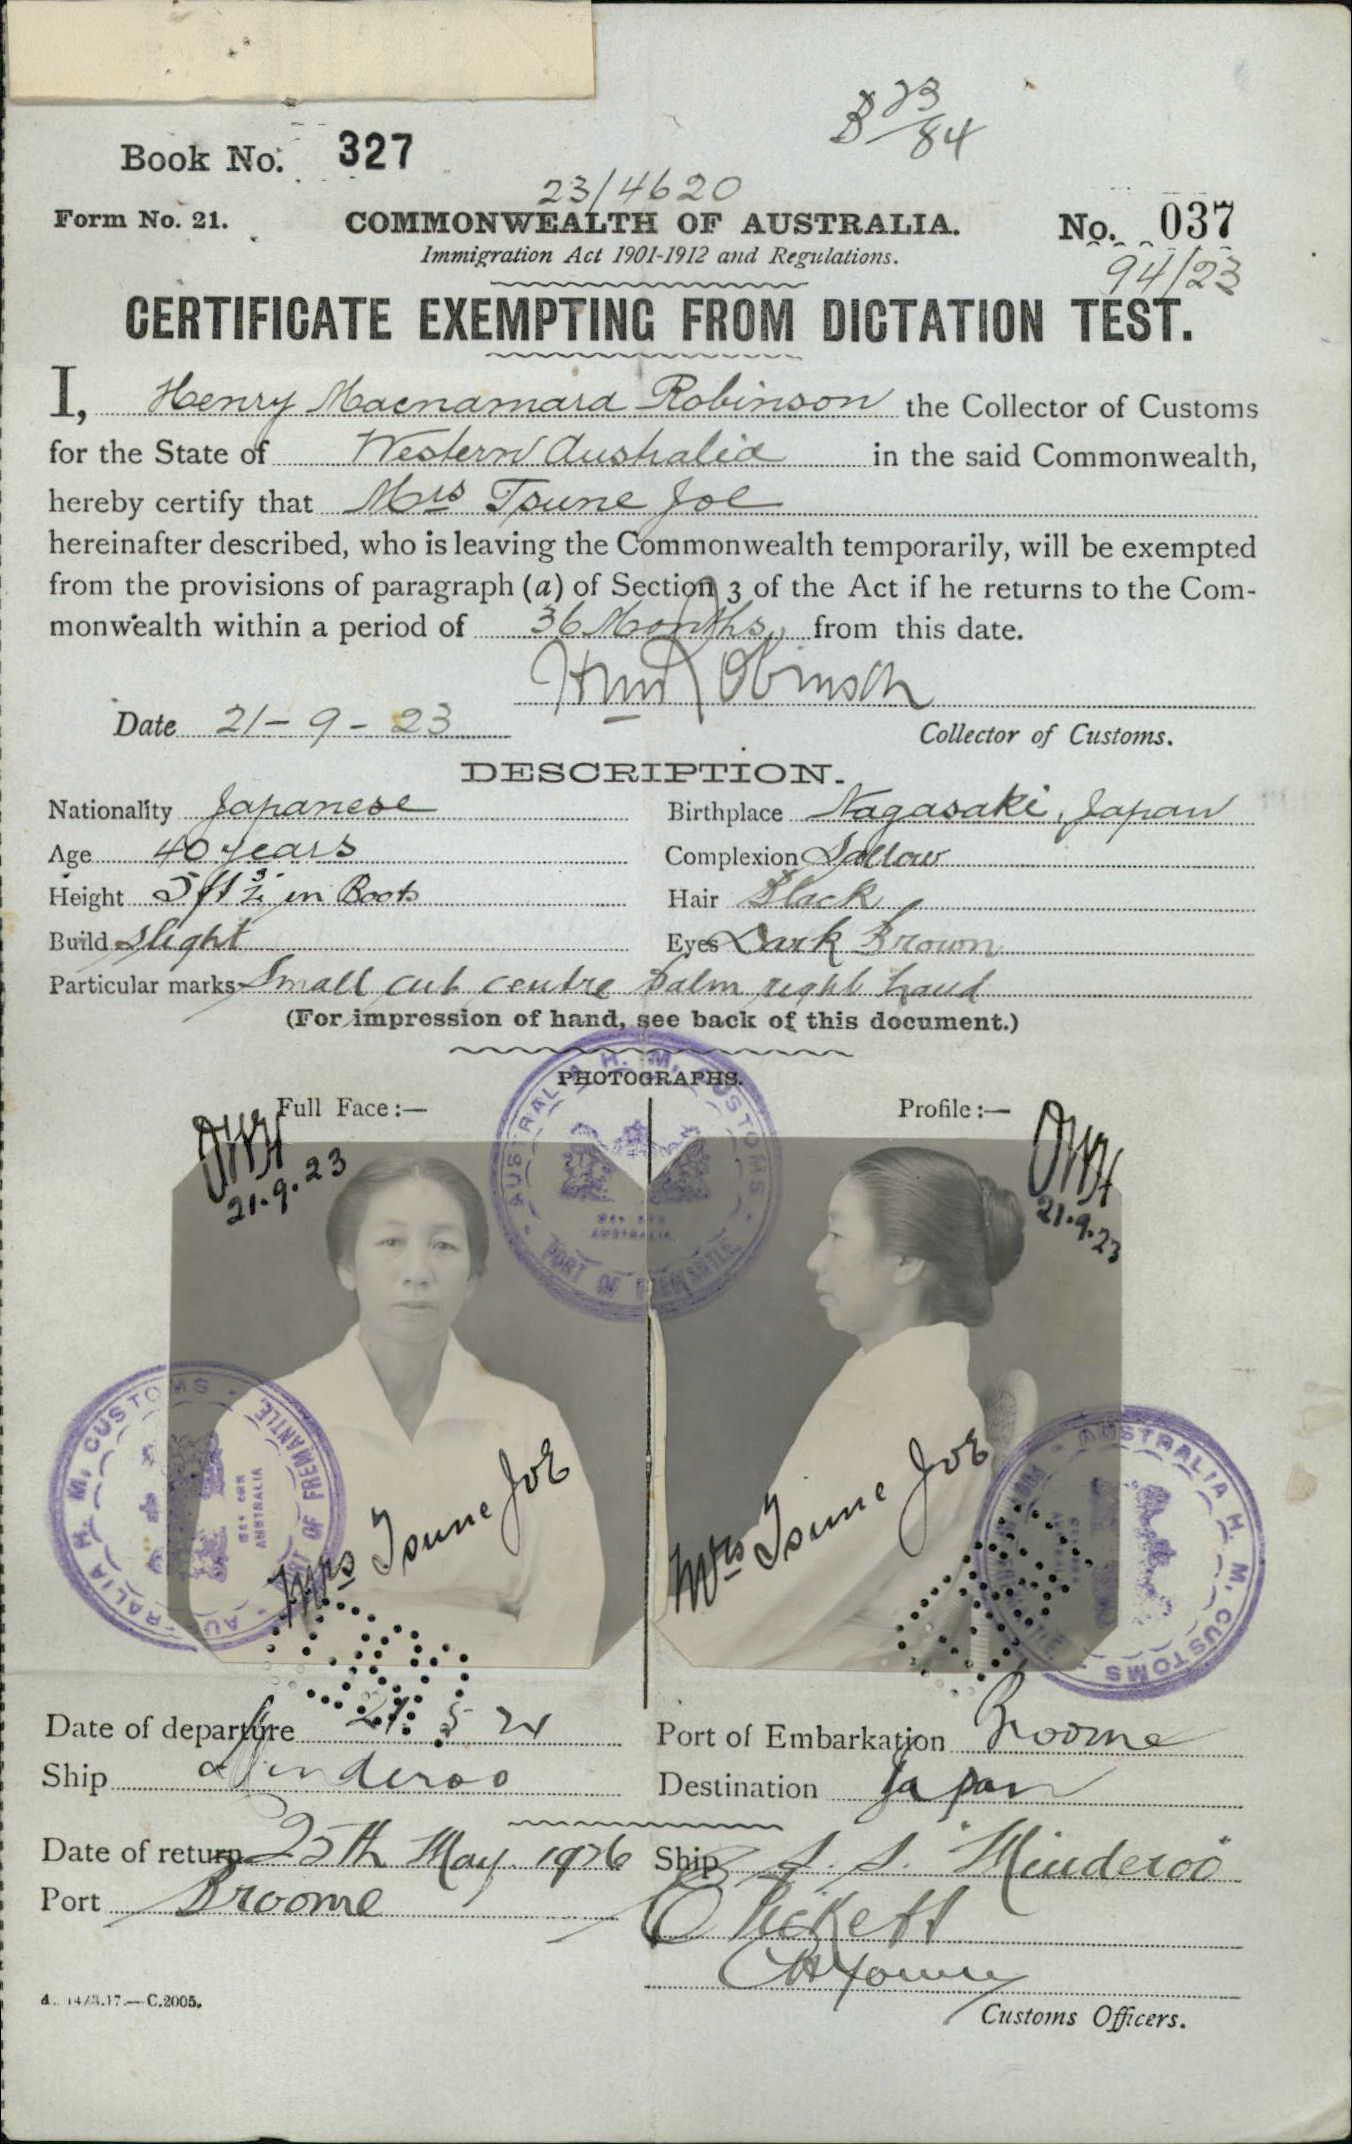 B 23/84
Book No. 327
23/4620
Form No. 21. COMMONWEALTH OF AUSTRALIA. No. 037
Immigration Act 1901-1912 and Regulations. 94/23
CERTIFICATE EXEMPTING FROM DICTATION TEST.
I, Henry Macnamara Robinson the Collector of Customs
for the State of Western Australia in the said Commonwealth,
hereby certify that Mrs Tsune Joe
hereinafter described, who is leaving the Commonwealth temporarily, will be exempted
from the provisions of paragraph (a) of Section 3 of the Act if he returns to the Com-
monwealth within a period of 36 Months from this date.
Robinson
Date 21-9-23 Collector of Customs.
DESCRIPTION.
Nationality Japanese Birthplace Nagasaki, Japan
Age 40 years Complexion Sallow
Height 5 ft in Boots Hair Black
Build slight Eyes Dark Brown
Particular marks Small cut centre palm right hand
(For impression of hand, see back of this document.)
PHOTOGRAPHS.
Full Face:— Profile:—
21.9.23 21.9.23
AUSTRALIA H. M. CUSTOMS PORT OF FREMANTLE
AUSTRALIA H. M. CUSTOMS PORT OF FREMANTLE
AUSTRALIA H. M. CUSTOMS
Mrs Tsune Joe Mrs Tsune Joe
Date of departure 21. 5 24 Port of Embarkation Broome
Ship Minderoo Destination Japan
Date of return 25th May 1926 Ship S. S. "Minderoo"
Port Broome
Customs Officers.
C.2005.